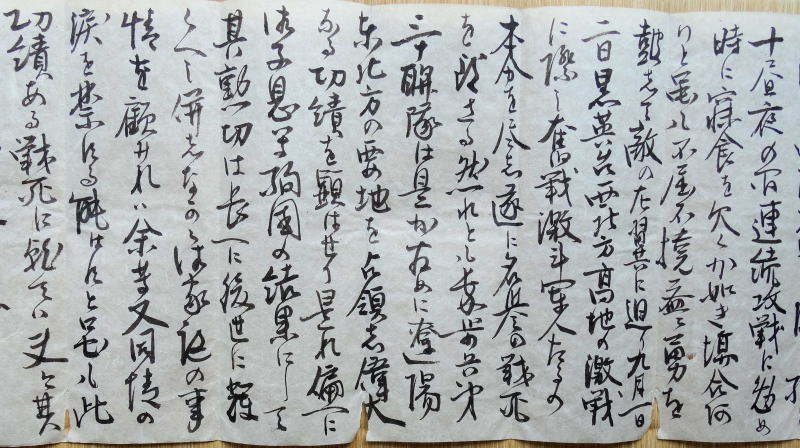 十昼夜の間連続攻戦に勉め
時に寐食を欠くか如き場合
りと雖も不屈不撓益々勇を
鼓して敵の左翼に迫り九月一日
二日黒英台西北方高地の激戦
に際し奮戦激斗軍人たるの
本分を尽し遂に名誉の戦死
を致さる然れとも我歩兵第
三十聯隊は是か為めに遼陽
東北方の要地を占領し偉大
なる功績を顕はせり是れ偏に
御子息等殉国の結果にして
其勲功は長へに後世に輝
くへし併しなから御家の事
情を顧みれは余等又同情の
涙を禁する能はすと雖も此
功績ある戦死に就ては其